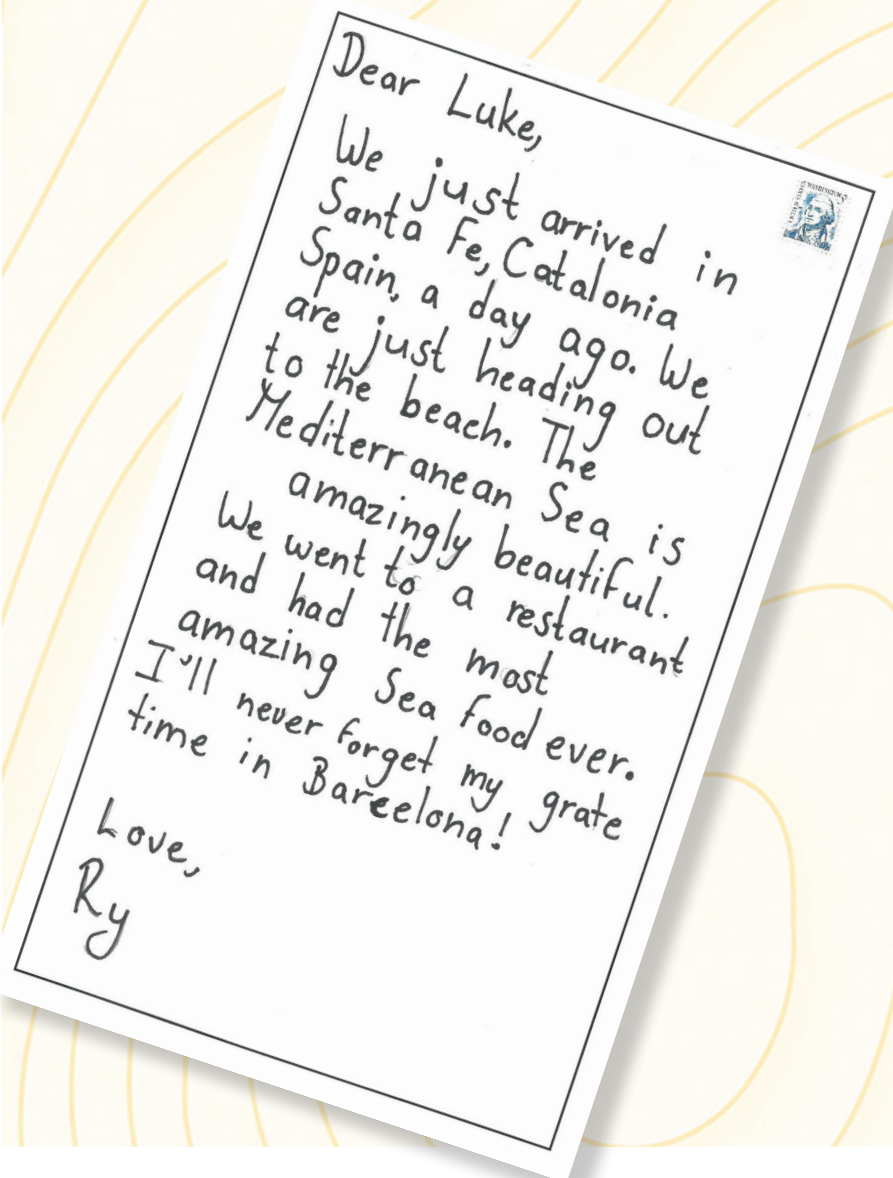 Dear Luke,
We just arrived in
Santa Fe, Catalonia
Spain, a day ago. We
are just heading out
to the beach. The
Mediterranean Sea is
amazingly beautiful.
We went to a restaurant
and had the most
amazing Sea food ever.
I'll never forget my grate
time in Barcelona!
Love,
Ry
WASHINGTON